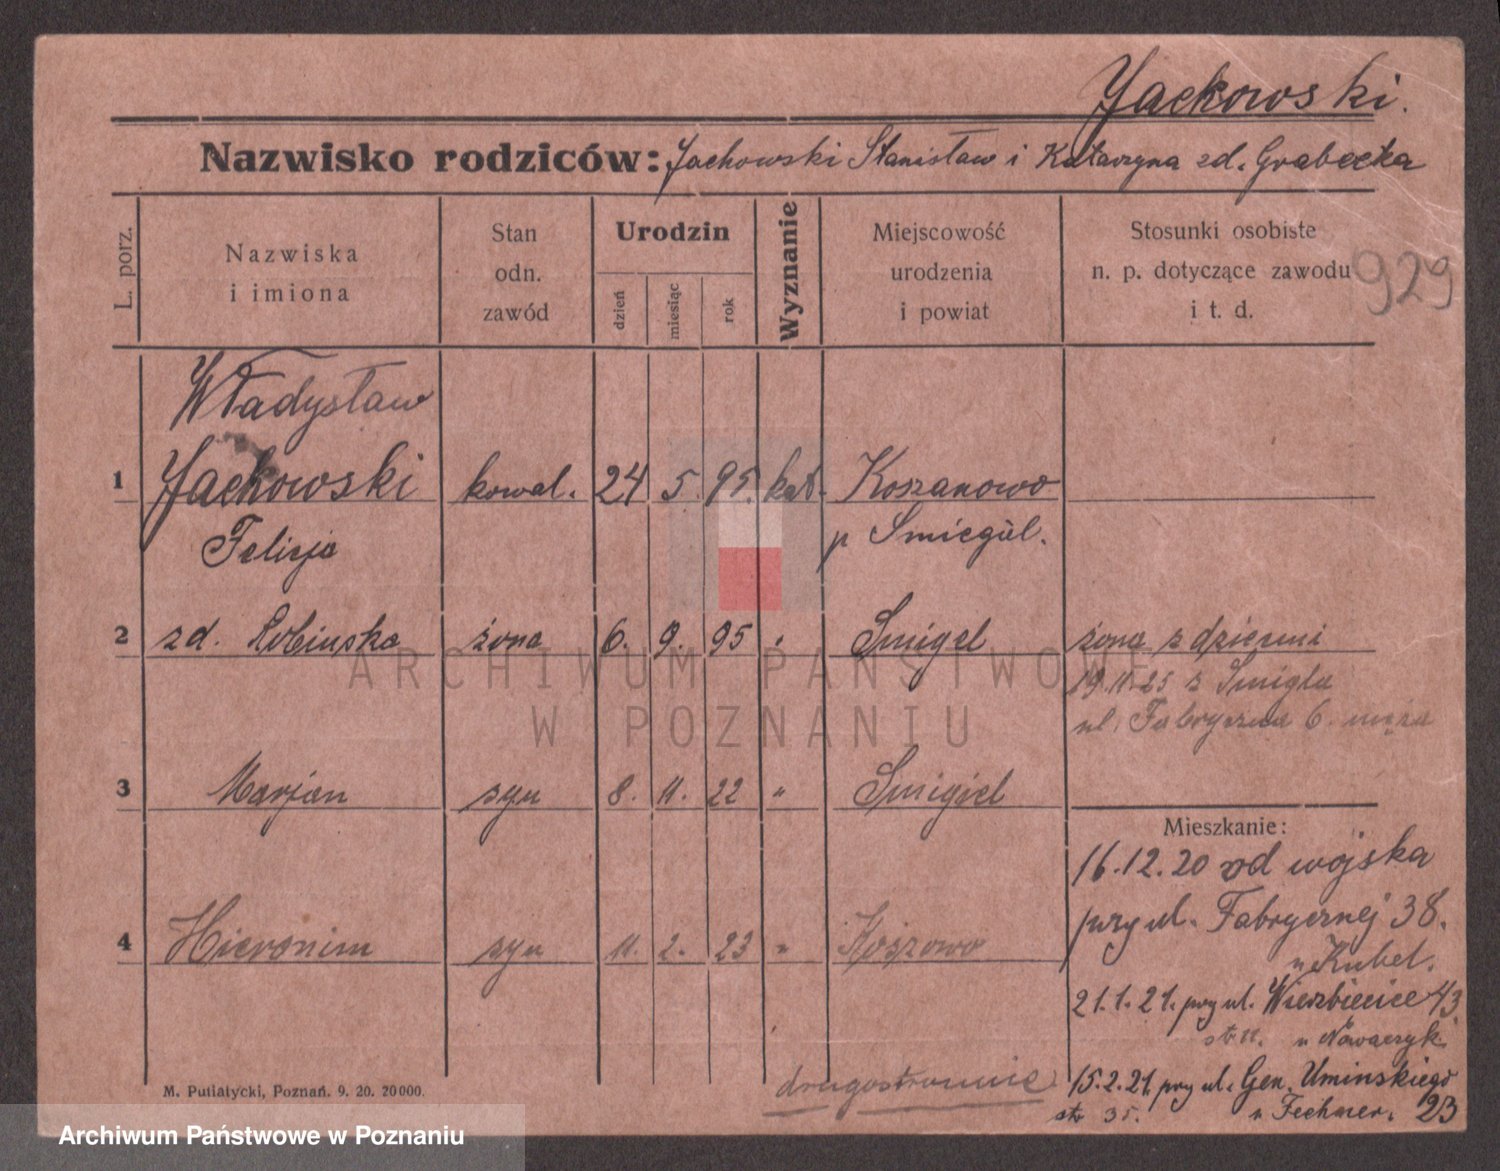 Jackowski.
Nazwisko rodziców: Jachowski Stanisław i Katarzyna zd. Grabecka
L. porz.
Nazwiska i imiona
Stan odn. zawód
Urodzin
dzień
miesiąc
rok
Wyznanie
Miejscowość urodzenia i powiat
Stosunki osobiste n. p. dotyczące zawodu i t. d.
929
Władysław
1 Jackowski kowal. 24 5. 95. kat. Koszanowo
p Smiegul.
Felicja
2 zd. żona 6. 9. 95 " Smigel żona z dziećmi
19.11.25 z Smigla
ul. Fabryczna 6. męża
3 Marjan syn 8. 11. 22 " Smigiel
Mieszkanie:
16.12.20 od wojska
przy ul. Fabrycznej 38.
u Kubel.
4 Hieronim syn 11. 2. 23 " Koszowo
21.1.21. przy ul. Wierzbiecice 43.
str. 11. u Nowaczyk.
drugostronnie
15.2.21. przy ul. Gen. Uminskiego
str. 35. u Fechner. 23
M. Putiatycki, Poznań. 9. 20. 20000.
ARCHIWUM PAŃSTWOWE
W POZNANIU
Archiwum Państwowe w Poznaniu